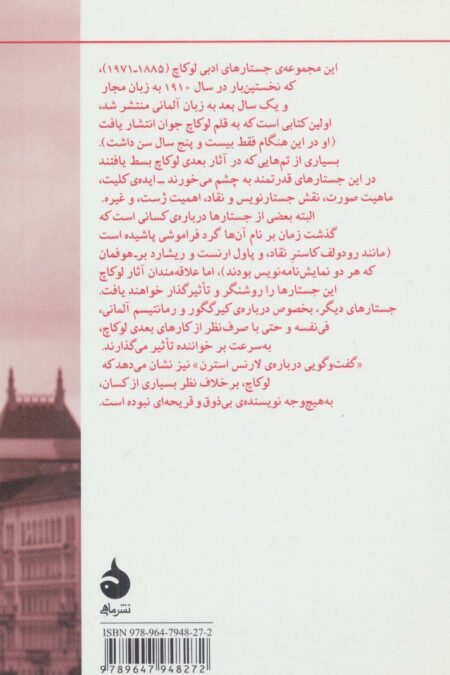 این مجموعه‌ی جستارهای ادبی لوکاچ (۱۸۸۵ـ۱۹۷۱)،
که نخستین‌بار در سال ۱۹۱۰ به زبان مجار
و یک سال بعد به زبان آلمانی منتشر شد،
اولین کتابی است که به قلم لوکاچ جوان انتشار یافت
(او در این هنگام فقط بیست و پنج سال سن داشت).
بسیاری از تم‌هایی‌که در آثار بعدی لوکاچ بسط یافتند
در این جستارهای قدرتمند به چشم می‌خورند ــ ایده‌ی کلیت،
ماهیت صورت، نقش جستارنویس و نقاد، اهمیت ژست، و غیره.
البته بعضی از جستارها درباره‌ی کسانی است که
گذشت زمان بر نام آن‌ها گرد فراموشی پاشیده است
(مانند رودولف کاسنرِ نقاد، و پاول ارنست و ریشارد بر-هوفمان
که هر دو نمایش‌نامه‌نویس بودند)، اما علاقه‌مندان آثار لوکاچ
این جستارها را روشنگر و تأثیرگذار خواهند یافت.
جستارهای دیگر، بخصوص درباره‌ی کیرکگور و رمانتیسم آلمانی،
فی‌نفسه و حتی با صرف‌نظر از کارهای بعدی لوکاچ،
به‌سرعت بر خواننده تأثیر می‌گذارند.
«گفت‌وگویی درباره‌ی لارنس استرن» نیز نشان می‌دهد که
لوکاچ، برخلاف نظر بسیاری از کسان،
به‌هیچ‌وجه نویسنده‌ی بی‌ذوق و قریحه‌ای نبوده است.
نشر ماهی
ISBN 978-964-7948-27-2
9789647948272